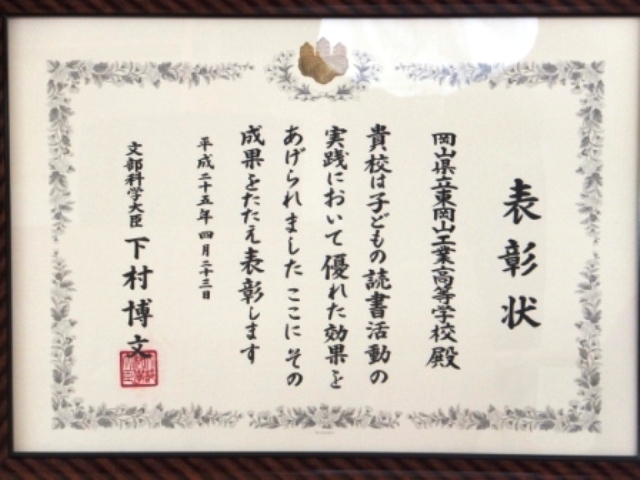 表彰状
岡山県立東岡山工業高等学校殿
貴校は子どもの読書活動の
実践において優れた効果を
あげられました ここに その
成果をたたえ表彰します
平成二十五年 四月二十三日
文部科学大臣 下村博文